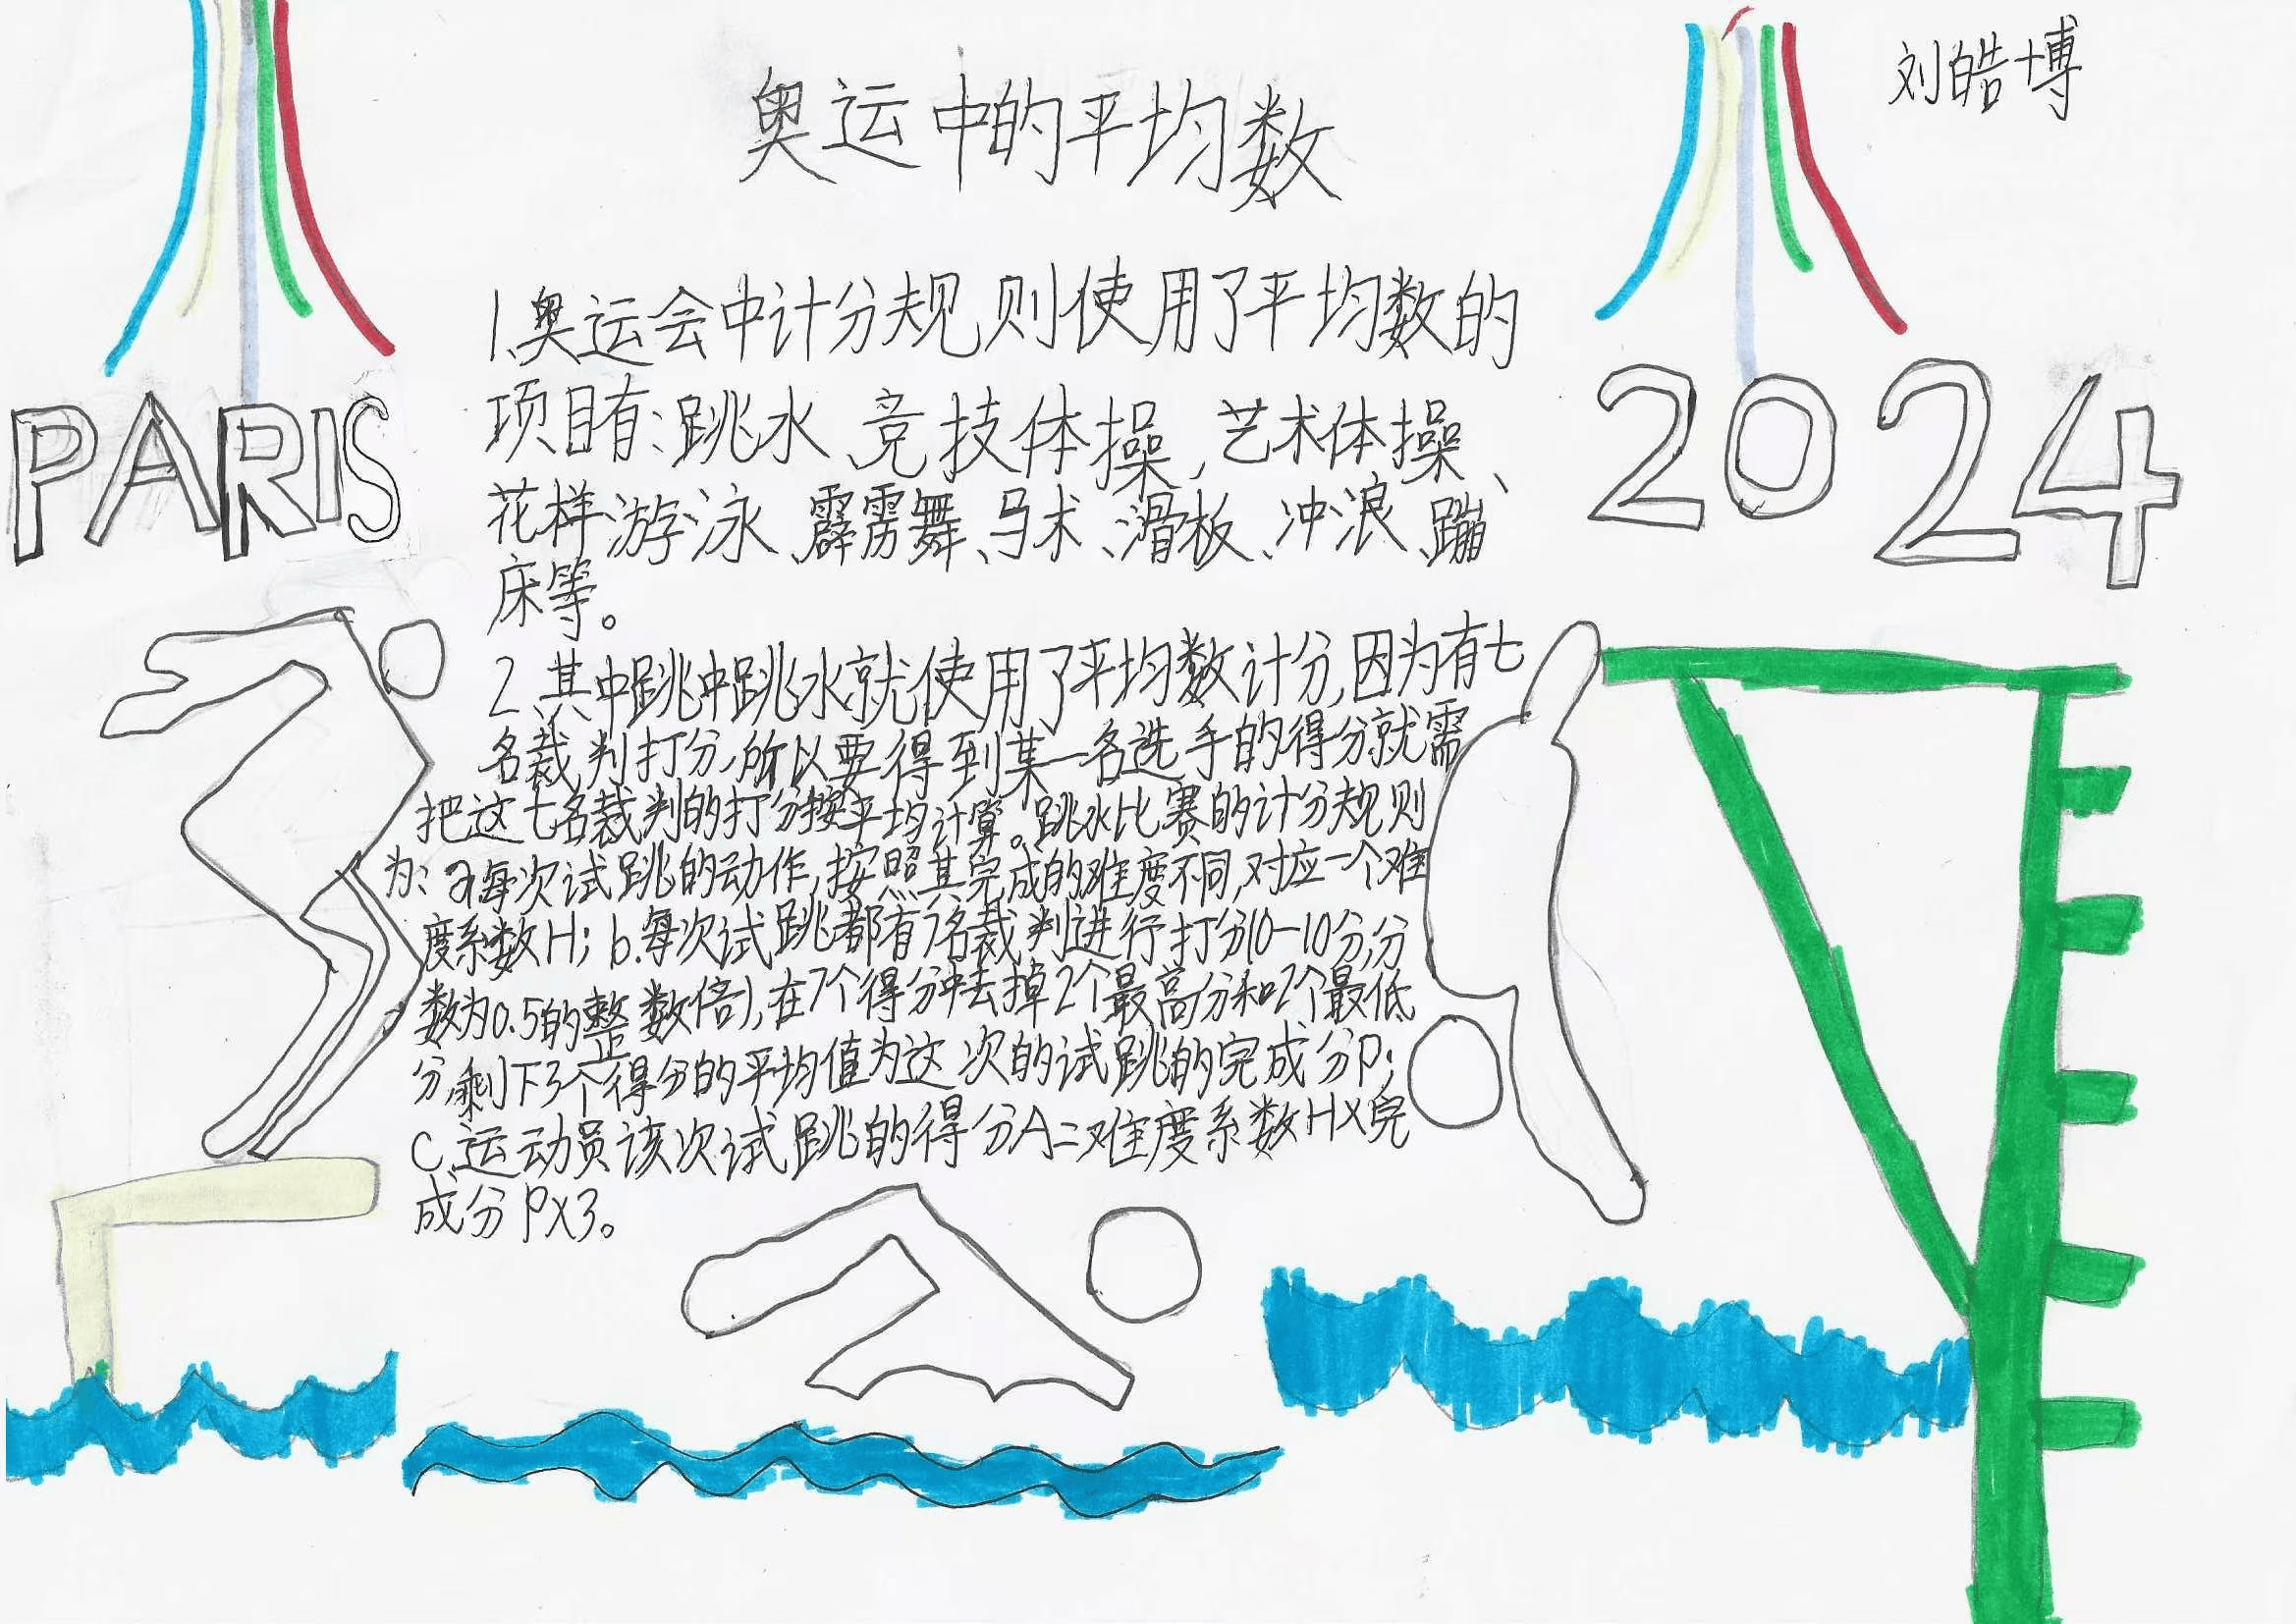 奥运中的平均数
刘皓博
PARIS
2024
1、奥运会中计分规则使用了平均数的
项目有：跳水、竞技体操、艺术体操、
花样游泳、霹雳舞、马术、滑板、冲浪、蹦
床等。
2、其中跳中跳水就使用了平均数计分，因为有七
名裁判打分，所以要得到某一名选手的得分就需
把这七名裁判的打分按平均计算。跳水比赛的计分规则
为：a每次试跳的动作，按照其完成的难度不同，对应一个难
度系数H；b.每次试跳都有7名裁判进行打分(0-10分，分
数为0.5的整数倍)，在7个得分中去掉2个最高分和2个最低
分，剩下3个得分的平均值为这次的试跳的完成分P；
C、运动员该次试跳的得分A=难度系数H×完
成分P×3。